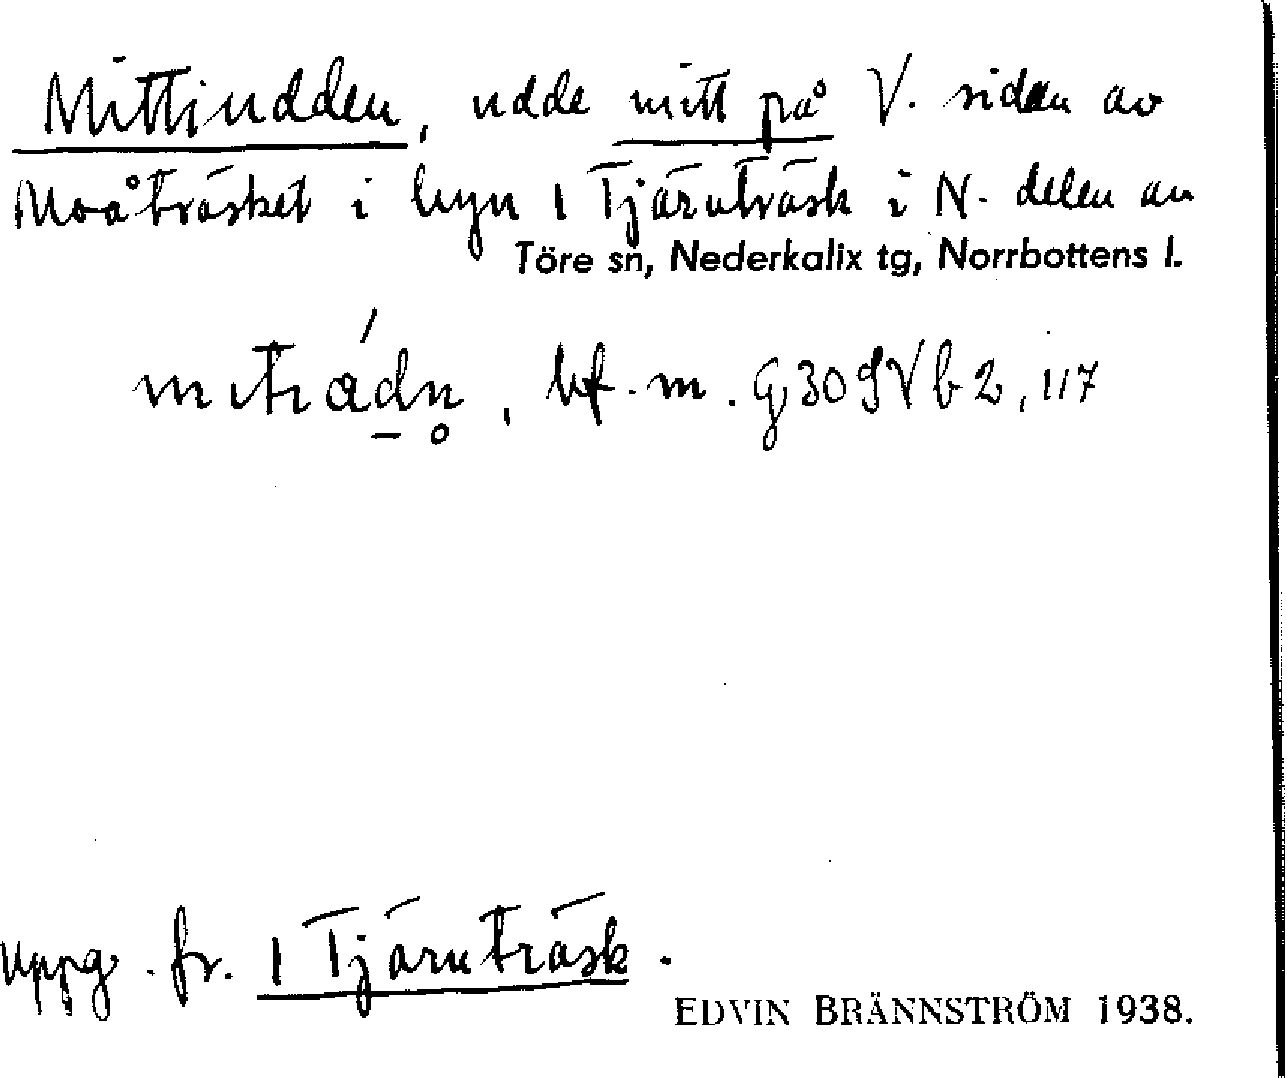 Mittiudden, udde mitt på V. sidan av
Moåträsket i byn 1 Tjärnträsk i N. delen av
Töre sn, Nederkalix tg, Norrbottens l.
bf. m. G 30 SV b 2, 117
uppg. fr. 1 Tjärnträsk.
EDVIN BRÄNNSTRÖM 1938.